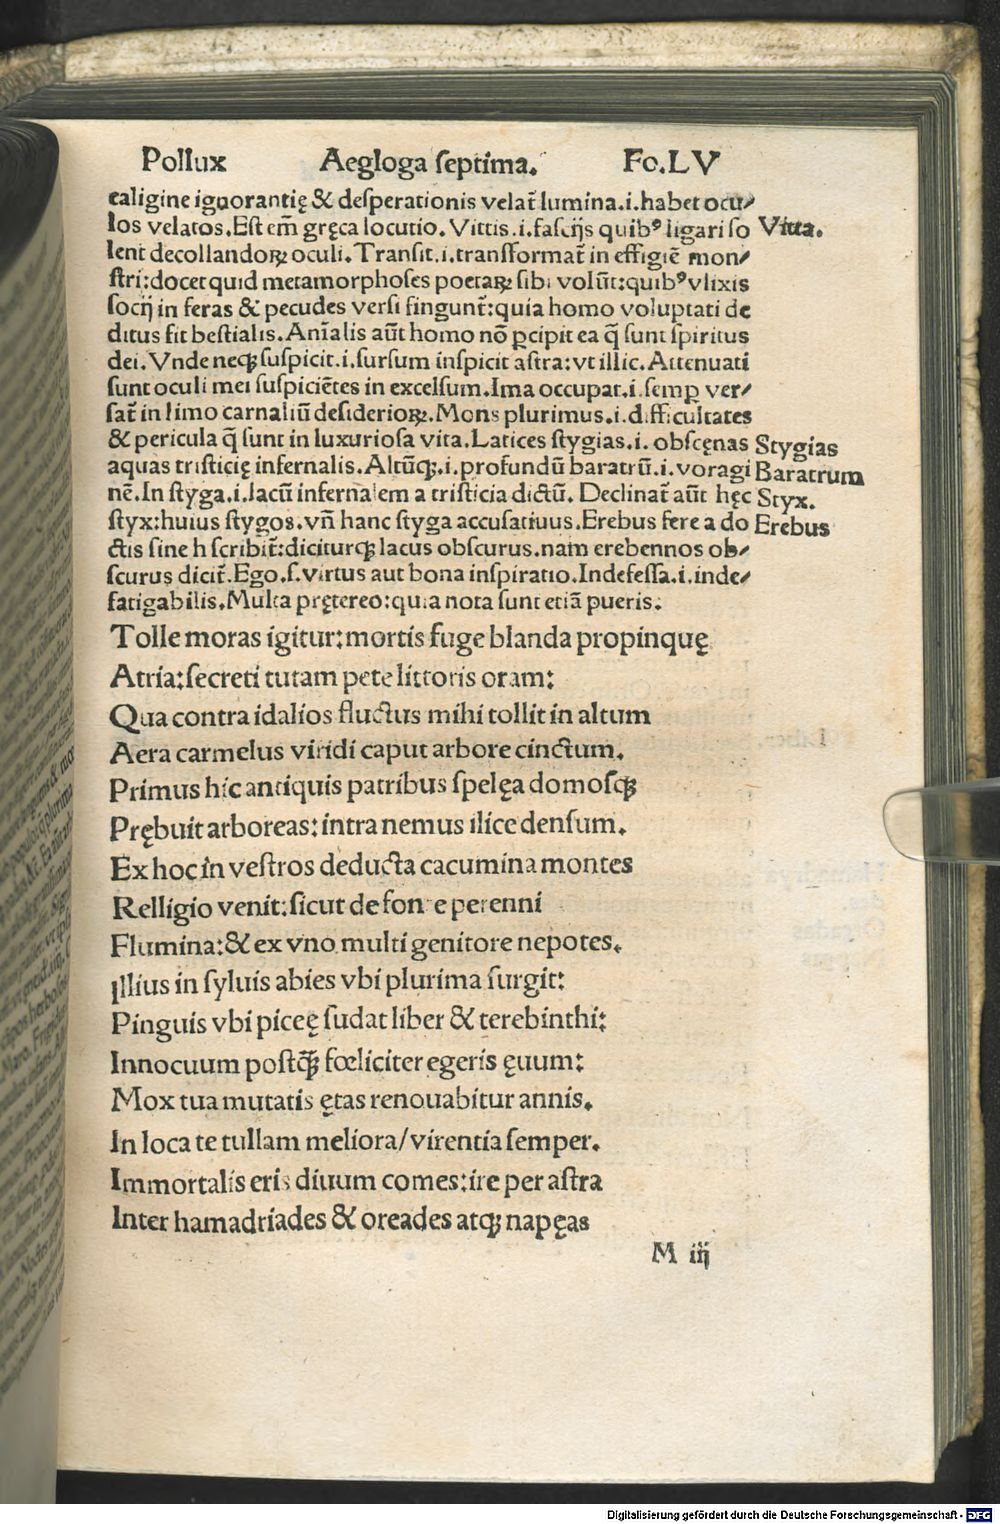 Pollux Aegloga ſeptima. Fo.LV
caligine ignorantię & deſperationis velat̃ lumina.i.habet ocu⸗
los velatos.Eſt em̃ gręca locutio.Vittis.i.faſcijs quibꝰ ligari ſo Vitta.
lent decollandoꝝ oculi.Tranſit.i.tranſformat̃ in effigiẽ mon⸗
ſtri:docet quid metamorphoſes poetaꝝ ſibi volũt:quibꝰ vlixis
ſocij in feras & pecudes verſi fingunt̃:quia homo voluptati de
ditus fit beſtialis.Anĩalis aũt homo nõ ꝑcipit ea q̃ ſunt ſpiritus
dei.Vnde neqꝫ ſuſpicit.i.ſurſum inſpicit aſtra:vt illic.Attenuati
ſunt oculi mei ſuſpiciẽtes in excelſum.Ima occupat.i.ſemꝑ ver⸗
ſat̃ in limo carnaliũ deſiderioꝝ.Mons plurimus.i.difficultates
& pericula q̃ ſunt in luxurioſa vita.Latices ſtygias.i.obſcęnas Stygias
aquas triſticię infernalis.Altũqꝫ.i.profundũ baratrũ.i.voragi Baratrum
nẽ.In ſtyga.i.lacũ infernalem a triſticia dictũ.Declinat̃ aũt hęc Styx.
ſtyx:huius ſtygos.vñ hanc ſtyga accuſatiuus.Erebus fere a do Erebus
ctis ſine h ſcribit̃:diciturqꝫ lacus obſcurus.nam erebennos ob⸗
ſcurus dicit̃.Ego.ſ.virtus aut bona inſpiratio.Indefeſſa.i.inde⸗
fatigabilis.Multa prętereo:quia nota ſunt etiã pueris.
Tolle moras igitur:mortis fuge blanda propinquę
Atria:ſecreti tutam pete littoris oram:
Qua contra idalios fluctus mihi tollit in altum
Aera carmelus viridi caput arbore cinctum.
Primus hic antiquis patribus ſpelęa domoſqꝫ
Prębuit arboreas:intra nemus ilice denſum.
Ex hoc in veſtros deducta cacumina montes
Relligio venit:ſicut de fonte perenni
Flumina:& ex vno multi genitore nepotes.
Illius in ſyluis abies vbi plurima ſurgit:
Pinguis vbi piceę ſudat liber & terebinthi:
Innocuum poſtqꝫ̃ fœliciter egeris ęuum:
Mox tua mutatis ętas renouabitur annis.
In loca te tullam meliora/virentia ſemper.
Immortalis eris diuum comes:ire per aſtra
Inter hamadriades & oreades atqꝫ napęas
M iij
Digitalisierung gefördert durch die Deutsche Forschungsgemeinschaft - DFG